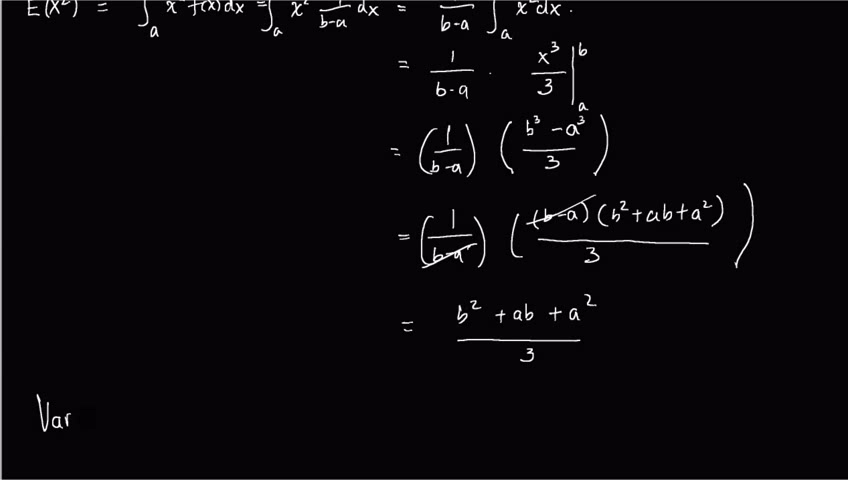 E(X²) = ∫ₐ x² f(x) dx = ∫ₐ x² 1/(b-a) dx = /(b-a) ∫ₐ x² dx.
= 1/(b-a) · x³/3 |ₐᵇ
= (1/(b-a)) ((b³ - a³)/3)
= (1/(b-a)) ((b-a)(b² + ab + a²)/3)
= (b² + ab + a²)/3
Var